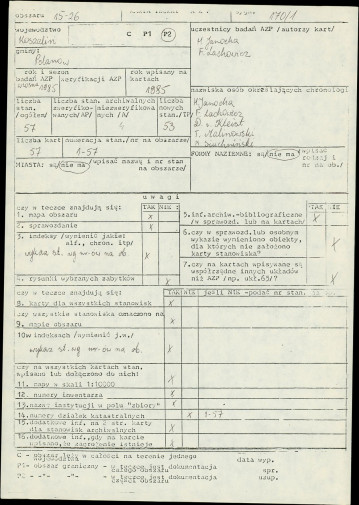 obszaru 15-26
170/1
województwo
Koszalin
C P1 P2
uczestnicy badań AZP /autorzy kart/
H. Janocha
F. Lachowicz
gmina:
Polanów
rok i sezon
badań AZP
weryfikacji AZP
rok wpisany na
kartach
wiosna 1985
1985
nazwiska osób określających chronologię
liczba
stan.
/ogółem/
liczba stan. archiwalnych
zweryfiko-
wanych/AP/
niezweryfiko-
wanych /A/
liczba
nowych
stan./TP/
57
4
53
H. Janocha
F. Lachowicz
T. Malinowski
liczba kart
numeracja stan./nr na obszarze/
57
1-57
MIASTA: są/nie ma/wpisać nazwą i nr stan
na obszarze/
FORMY NAZIEMNE: są/nie ma
/wpisać
rodzaj i
nr na ob./
uwagi
czy w teczce znajdują się:
TAK NIE
1. mapa obszaru X
2. sprawozdanie X
3. indeksy /wymienić jakie:
alf., chron. itp/
wykaz st. wg nr-ów na ob. X
4. rysunki wybranych zabytków X
TAK NIE
5.inf.archiw.-bibliograficzne
/w sprawozd. lub na kartach/ X
6.czy w sprawozd.lub osobnym
wykazie wymieniono obiekty,
dla których nie założono
karty stanowiska" X
7.czy na kartach wpisywane są
współrzędne innych układów
niż AZP /np. ukł.65/? X
czy w teczce znajdują się:
TAK NIE jeśli NIE -podać nr stan.
8. karty dla wszystkich stanowisk X
czy wszystkie stanowiska oznaczono na
9. mapie obszaru X
10w indeksach /wymienić j.w./
wykaz st. wg nr-ów na ob. X
czy na wszystkich kartach stan.
wpisano lub dołączono do nich:
11. mapy w skali 1:10000 X
12. numery inwentarza X
13.nazwę instytucji w polu "zbiory" X
14.numery działek katastralnych X 1-57
15.dodatkowe inf. na 2 str. karty
dla stanowisk archiwalnych X
16.dodatkowe inf.,gdy na karcie
wpisano,że zagrożenie istnieje X
C - obszar leży w całości na terenie jednego
województwa
P1- obszar graniczny - w teczce jest dokumentacja
P2 - -"- -"- - w teczce jest dokumentacja
części obszaru
data wyp.
spr.
uzup.